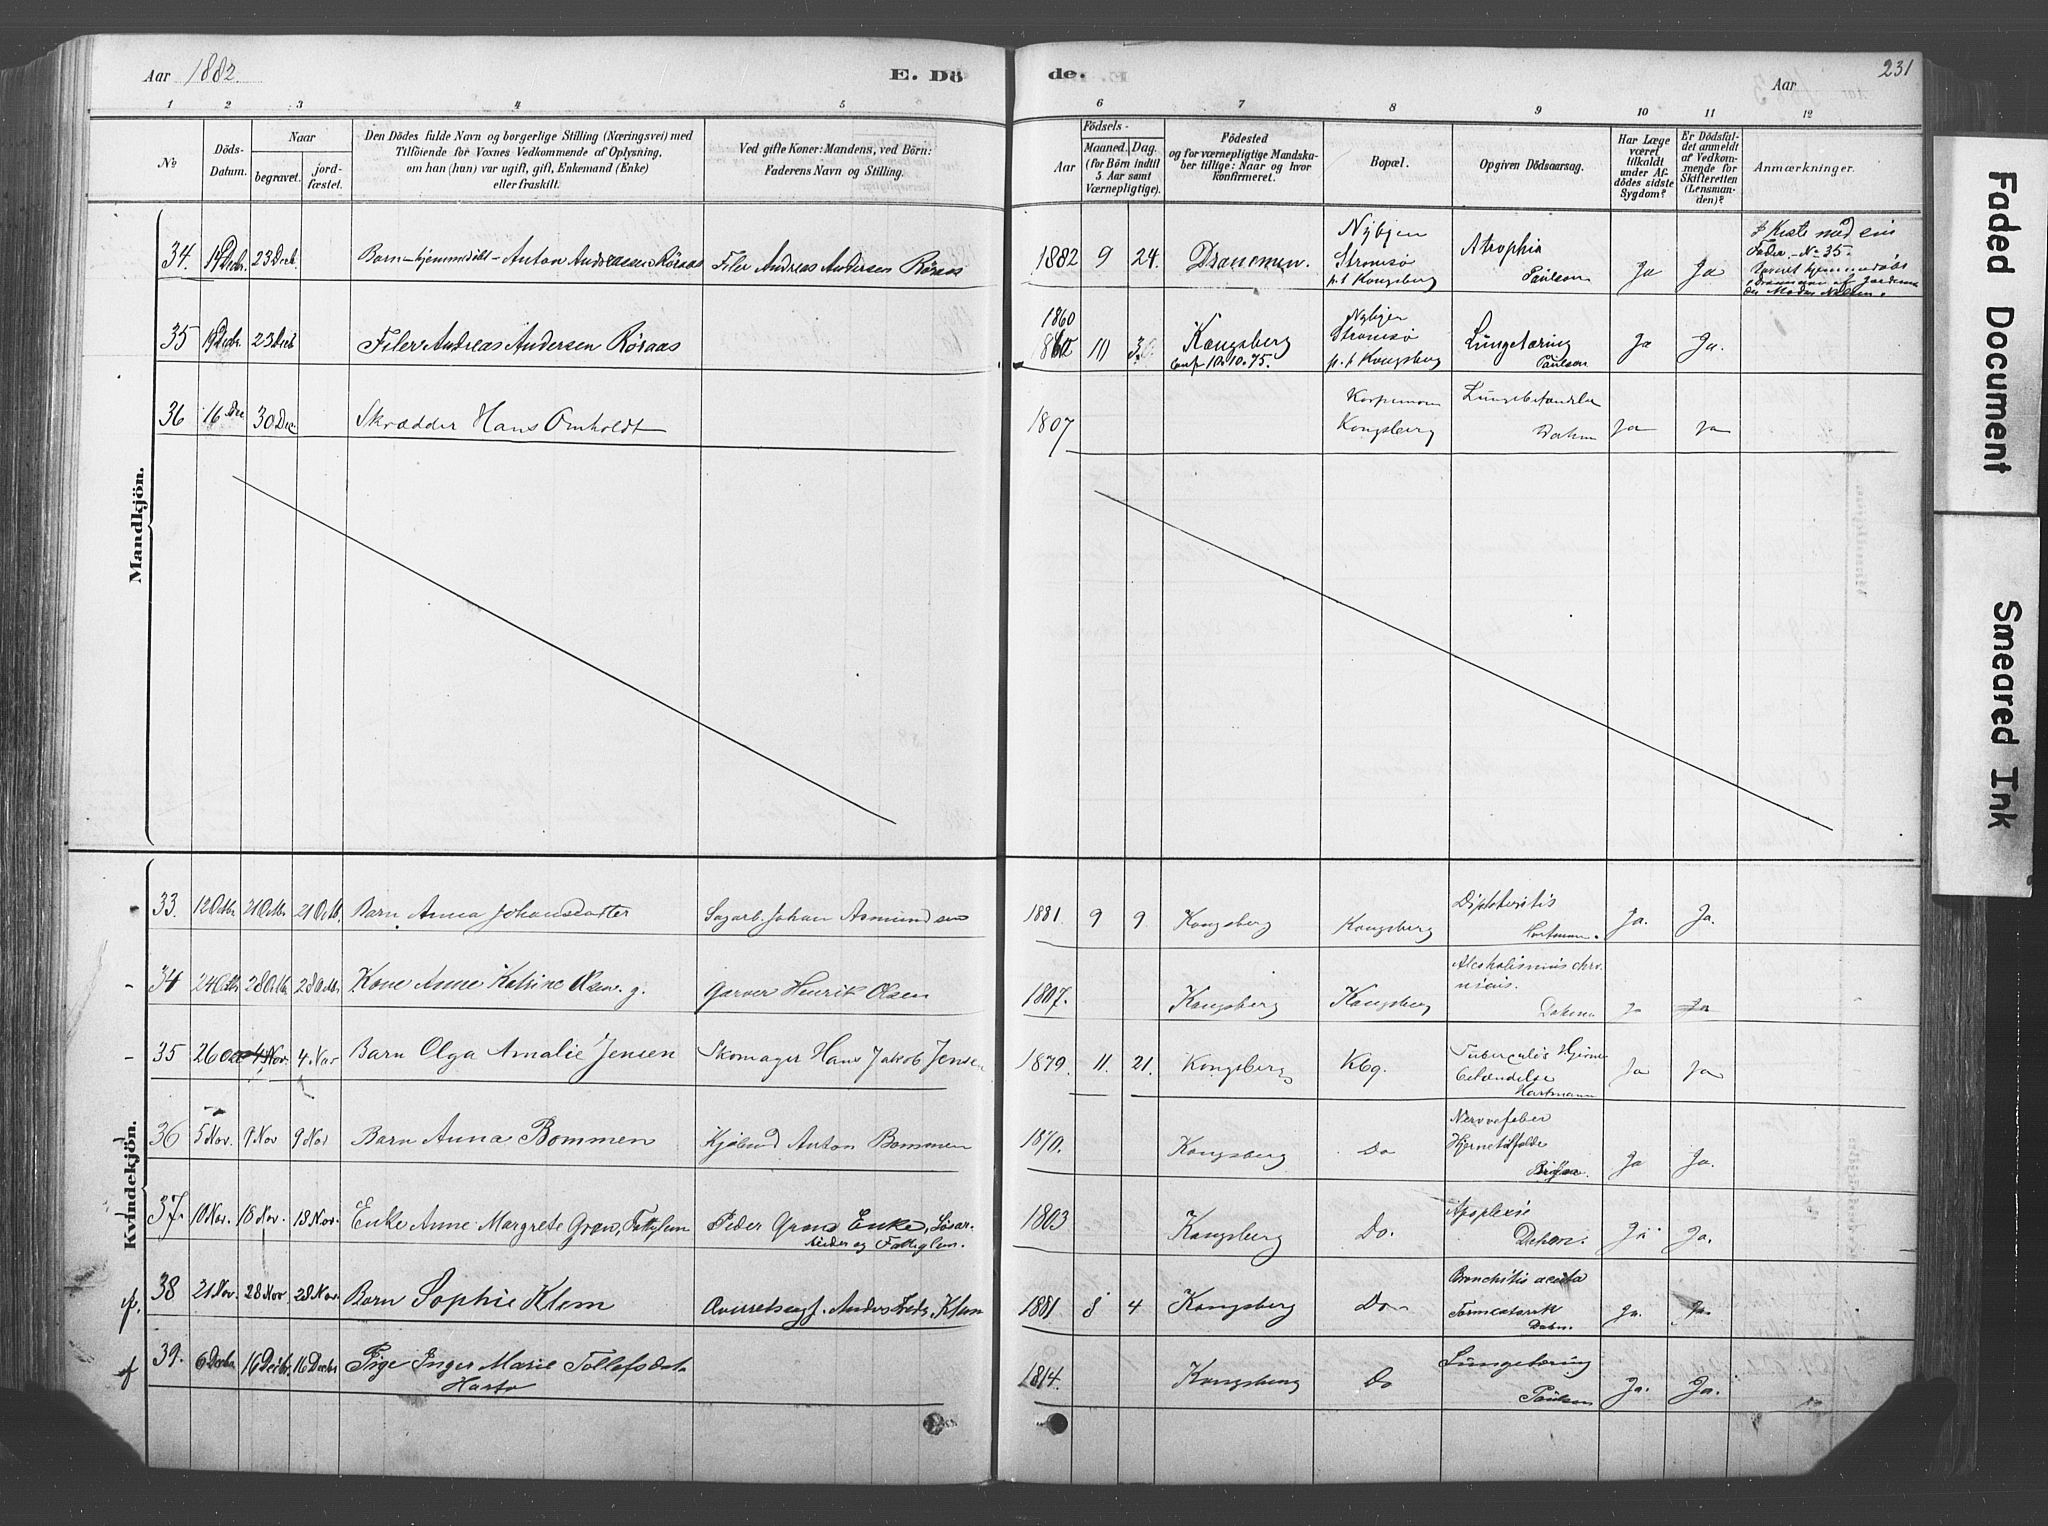 Aar 1882.
E. Dö
de.
Aar
231
1 2 3 4 5
6 7 8 9 10 11 12
No
Döds-
Datum.
Naar
begravet.
jord-
fæstet.
Den Dödes fulde Navn og borgerlige Stilling (Næringsvei) med
Tilföiende for Voxnes Vedkommende af Oplysning,
om han (hun) var ugift, gift, Enkemand (Enke)
eller fraskilt.
Ved gifte Koner: Mandens, ved Börn:
Faderens Navn og Stilling.
Födsels-
Aar
Maaned.
Dag.
(for Börn indtil
5. Aar samt
Værnepligtige).
Födested
og for værnepligtige Mandska-
ber tillige: Naar og hvor
konfirmeret.
Bopæl.
Opgiven Dödsaarsag.
Har Læge
været
tilkaldt
under Af-
dödes sidste
Sygdom?
Er Dödsfal-
det anmeldt
af Vedkom-
mende for
Skifteretten
(Lensman-
den)?
Anmærkninger.
Mandkjön.
34. 14 Decbr. 23 Decb. Barn - hjemmedöbt - Anton Andreassen Röraas Filer Andreas Andersen Röraas 1882 9 24. Drammen.
Strömsö
p.t Kongsberg
Atrophia
Paulson
Ja Ja
I Kiste med sin
Fader. No 35.
35 19 Decbr. 23 Decb Filer Andreas Andersen Röraas
1860
Kongsberg
Conf 10.10.75.
Strömsö
p.t Kongsberg
Lungetæring
Paulson
Ja Ja.
36 16 Dec 30 Dec. Skrædder Hans Omholdt 1807
Kongsberg
Ja Ja
Kvindekjön.
33. 12 Octbr. 21 Octbr 21 Octb. Barn Anna Johansdatter Sagarb. Johan Asmundsen 1881. 9 9. Kongsberg Kongsberg
Diphteritis
Hartmann.
Ja. Ja.
34 24 Octbr 28 Octbr. 28 Octbr. Kone Anne Katrine Olsen. g. Garver Henrik Olsen 1807. Kongsberg Kongsberg
Alcoholismus chro-
nicus.
Ja Ja
35 26 Oct 4 Nov. 4. Nov Barn Olga Amalie Jensen Skomager Hans Jakob Jensen 1879. 11. 21. Kongsberg Kbg.
Tuberculös Hjerne
betændelse
Hartmann
Ja Ja
36 5 Nov. 9 Nov 9 Nov Barn Anna Bommen Anton Bommen 1870. Kongsberg Do
Nervefeber
Hjernetilfælde
Ja Ja.
37. 10 Nov. 18 Nov. 18 Nov. Enke Anne Margrete Grøn, Fattiglem Peder Grøns Enke, Løsar-
beider og Fattiglem.
1803 Kongsberg Do.
Apoplexie
Ja Ja.
38 21 Nov. 28 Nov 28 Nov. Barn Sophie Klem Anders Fredr. Klem 1881 8 4 Kongsberg Do
Bronchitis acuta
Tarmcatarrh
Ja. Ja.
39. 6 Decbr. 16 Decbr. 16 Decbr Pige Inger Marie Tollefsdat.
1814. Kongsberg Do
Lungetæring
Paulson
Ja. Ja.
Faded Document
Smeared Ink